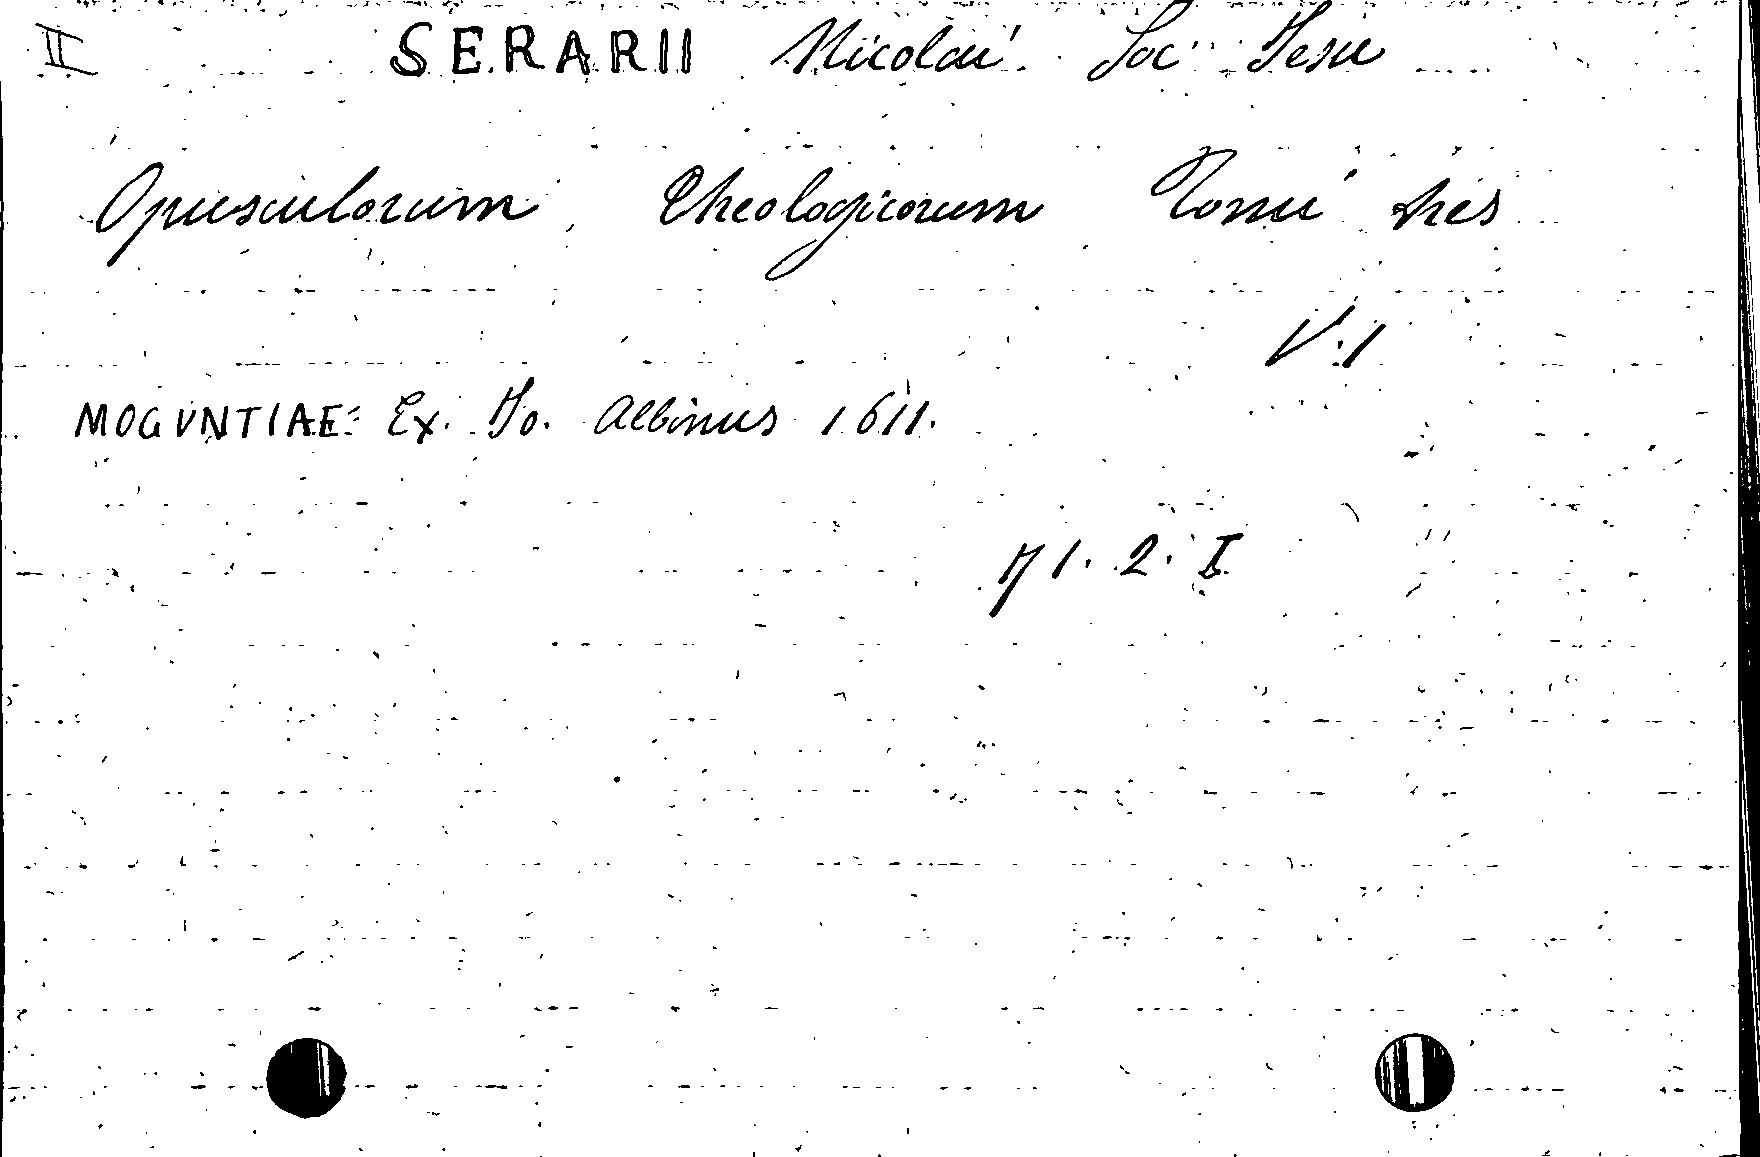 II SERARII Nicolai Soc Jesu
Opusculorum Theologicorum Tomi tres
V.1
MOGVNTIAE: Ex. Jo. Albinus 1611.
1. 2. I